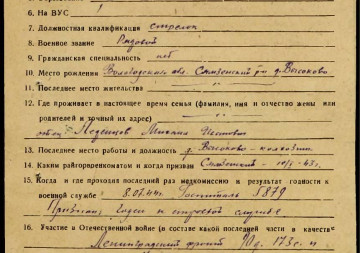 6. На ВУС 1
7. Должностная квалификация стрелок
8. Военное звание Рядовой
9. Гражданская специальность нет
10. Место рождения Вологодская обл. Сямженский р-н д. Высоково
11. Последнее место жительства —"—
12. Где проживает в настоящее время семья (фамилия, имя и отчество жены или
родителей и точный их адрес)
отец Михаил
13. Последнее место работы и должность д. Высоково - колхозник
14. Каким райгорвоенкоматом и когда призван Сямженский - 43 г.
15. Когда и где проходил последний раз медкомиссию и результат годности к
военной службе 8.07.44 г. Госпиталь 5879
Признан годен к строевой службе
16. Участие в Отечественной войне (в составе какой последней части в качестве
Ленинградский фронт 173 с. п